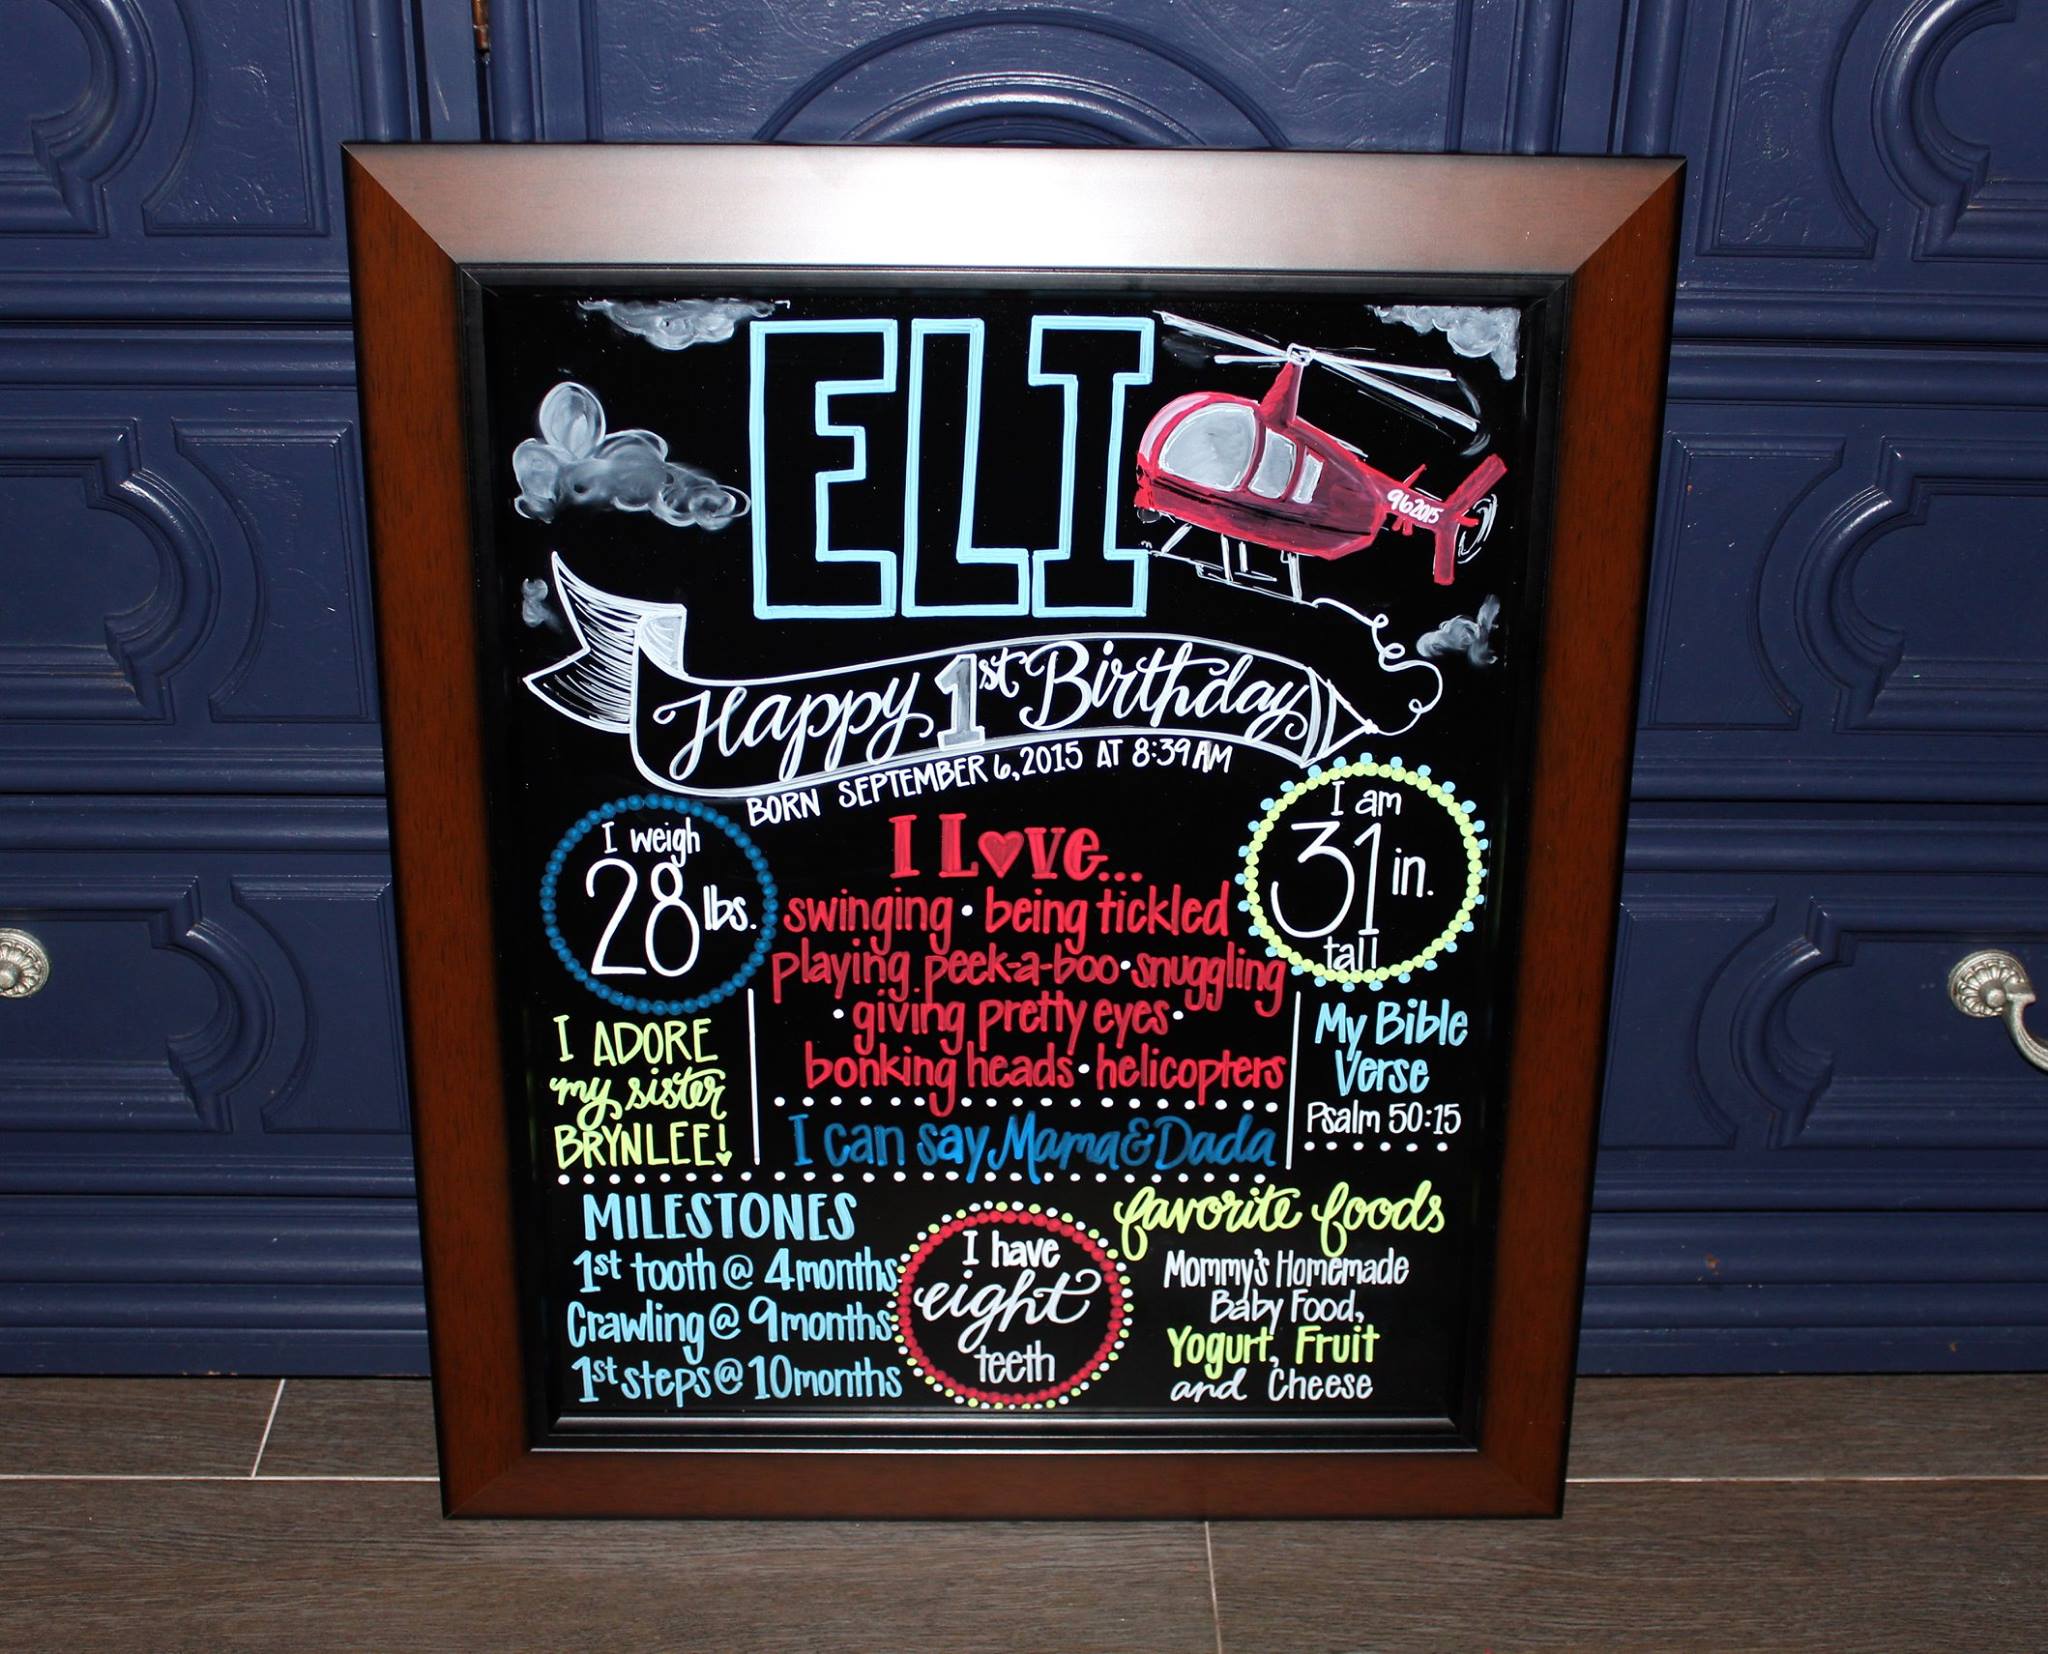 ELI
962015
Happy 1st Birthday
BORN SEPTEMBER 6, 2015 AT 8:39 AM
I weigh
28 lbs.
I Love...
swinging • being tickled
playing peek-a-boo • snuggling
• giving pretty eyes •
bonking heads • helicopters
I am
31 in.
tall
I ADORE
my sister
BRYNLEE!
I can say Mama & Dada
My Bible
Verse
Psalm 50:15
MILESTONES
1st tooth @ 4 months
Crawling @ 9 months
1st steps @ 10 months
I have
eight
teeth
favorite foods
Mommy's Homemade
Baby Food,
Yogurt, Fruit
and Cheese